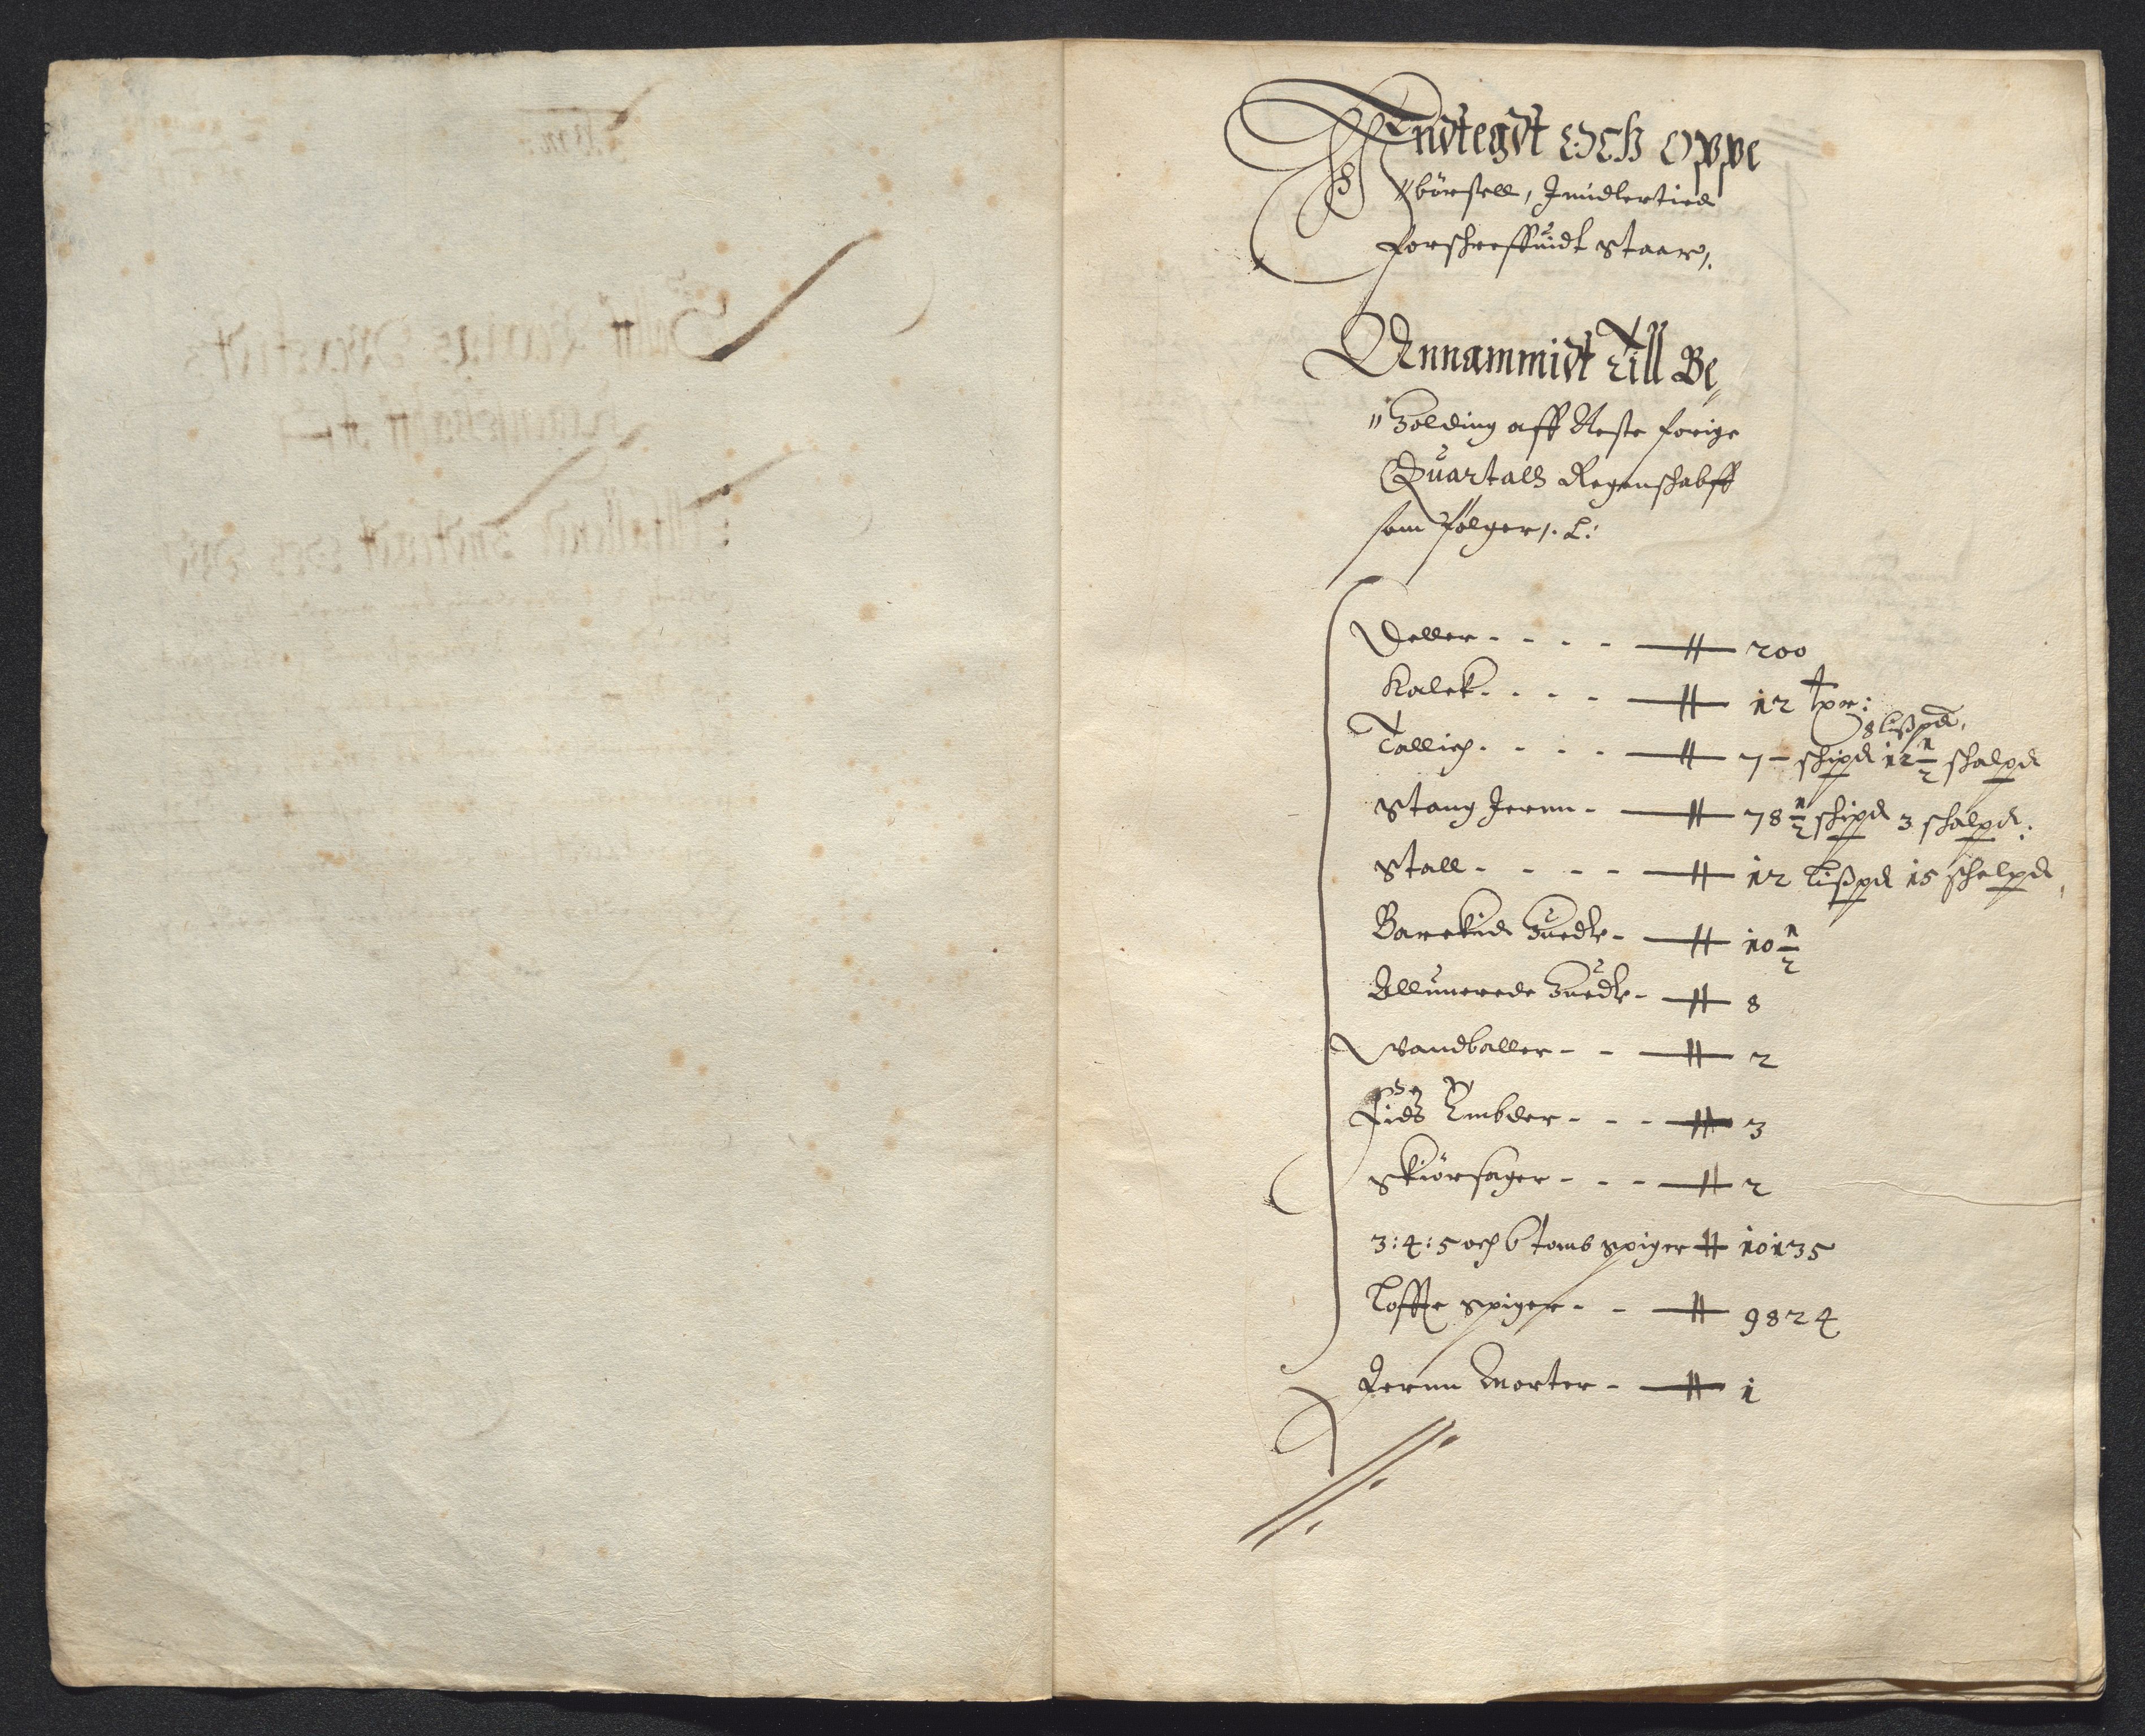 Indtegdt Och Oppe
"börsell, Imidlertied
forschreffuidt staar,.
Annammidt Till Be,,
"holding aff Neste forige
Quartals Regenschabff
som følger,. L:
Deller - - - - 200
Kalck - - - - 12
8 lißpd,
Tallich - - - - 7 - schipd 12 1/2 schalpd
Stang Jernn - 78 1/2 schipd 3 schalpd:
Stall - - - - 12 Lißpd 15 schalpd
Barckid Huedr - 10 1/2
Allunerede Huedr - 8
Vandballer - - 2
Embder - - - 3
Skiörsager - - - 2
3:4:5 och 6 tomb spiger 10135
Loffte spiger - - 9824
Jernn Morter - 1